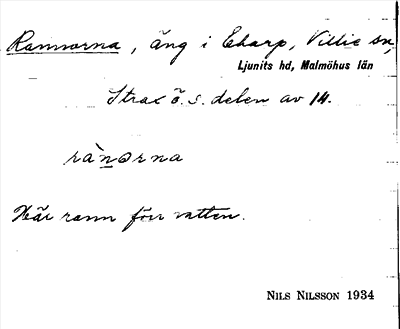 Rannorna, äng i Esarp, Villie sn,
Ljunits hd, Malmöhus län
Strax ö. s. delen av 14.
rànərna
Här rann förr vatten.
NILS NILSSON 1934